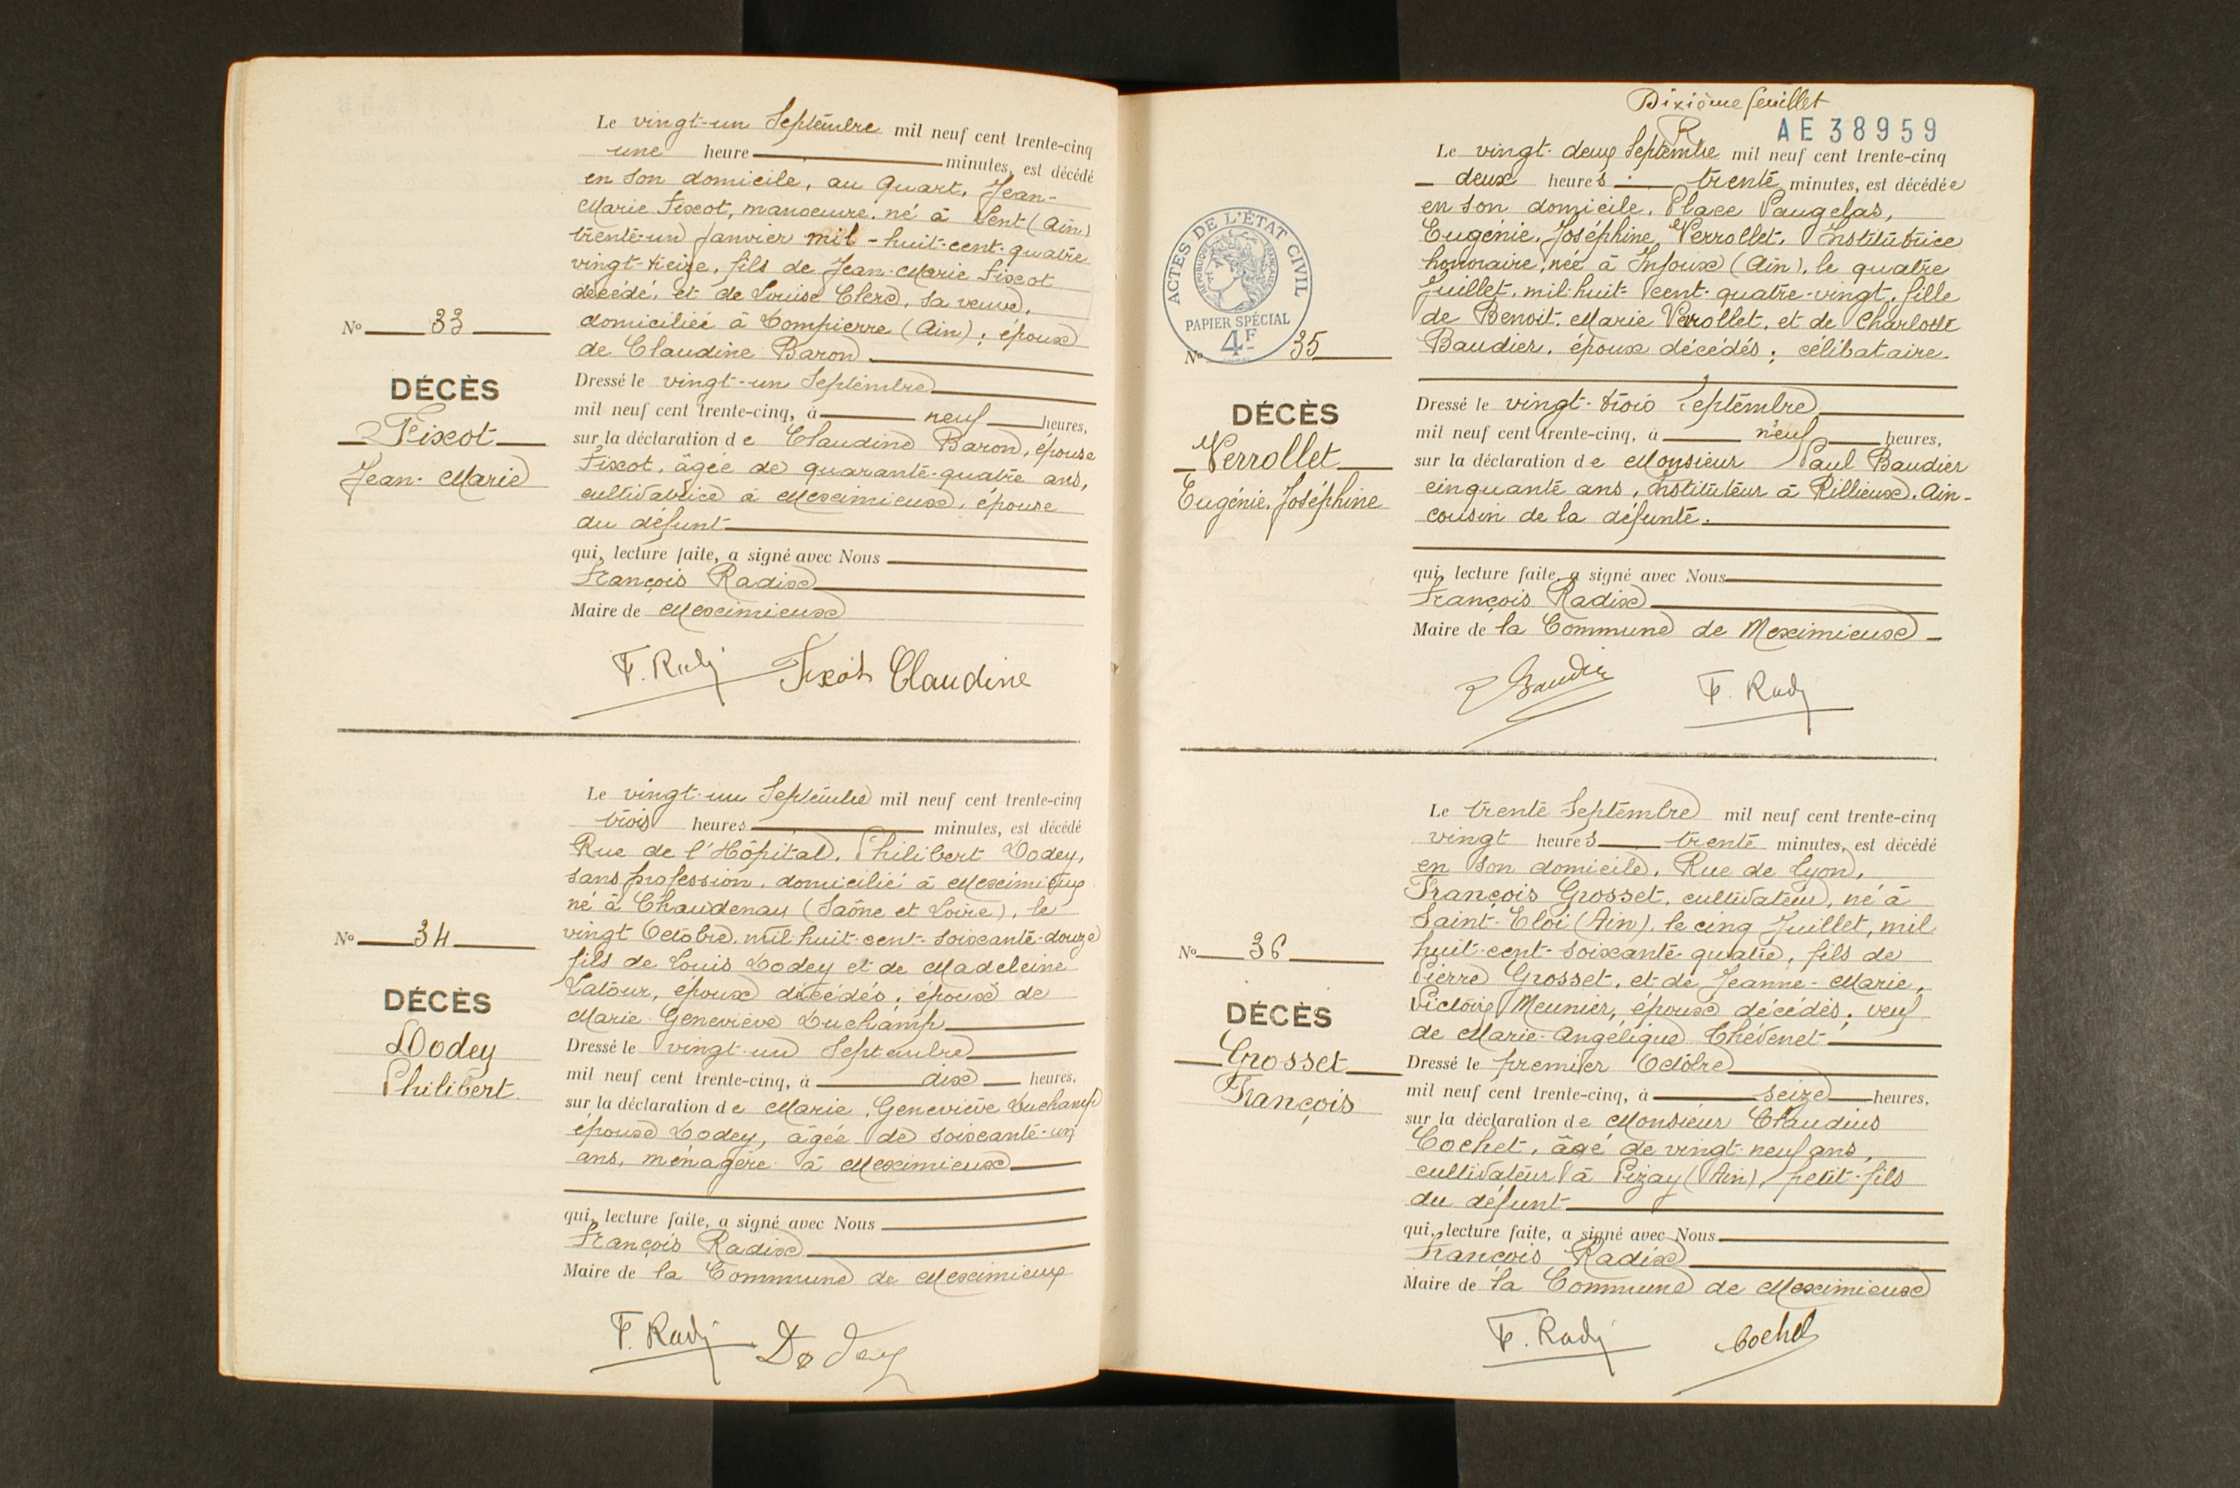 Le vingt-un Septembre mil neuf cent trente-cinq
une heure minutes, est décédé
en son domicile, au Quart, Jean-
Marie Fixot, manoeuvre, né à Lent (Ain)
trente-un Janvier mil-huit-cent-quatre
vingt-treize, fils de Jean-Marie Fixot
décédé, et de Louise Clerc, sa veuve,
domiciliée à Dompierre (Ain); époux
de Claudine Baron
No 33
DÉCÈS
Fixot
Jean-Marie
Dressé le vingt-un Septembre
mil neuf cent trente-cinq, à neuf heures,
sur la déclaration de Claudine Baron, épouse
Fixot, âgée de quarante-quatre ans,
cultivatrice à Meximieux, épouse
du défunt
qui, lecture faite, a signé avec Nous
François Radix
Maire de Meximieux
F. Radix Fixot Claudine
Le vingt-un Septembre mil neuf cent trente-cinq
trois heures minutes, est décédé
Rue de l'Hôpital, Philibert Dodey,
sans profession, domicilié à Meximieux
né à Chaudenay (Saône et Loire), le
vingt Octobre, mil-huit-cent-soixante-douze
fils de Louis Dodey et de Madeleine
Latour, époux décédés; époux de
Marie Geneviève Duchamp
No 34
DÉCÈS
Dodey
Philibert
Dressé le vingt-un Septembre
mil neuf cent trente-cinq, à dix heures,
sur la déclaration de Marie, Geneviève Duchamp
épouse Dodey, âgée de soixante-un
ans, ménagère à Meximieux
qui, lecture faite, a signé avec Nous
François Radix
Maire de la Commune de Meximieux
F. Radix Dodey
Dixième feuillet
R
AE 38959
Le vingt-deux Septembre mil neuf cent trente-cinq
deux heures trente minutes, est décédée
en son domicile, Place Vaugelas,
Eugénie, Joséphine Verrollet, Institutrice
honoraire, née à Injoux (Ain), le quatre
Juillet, mil-huit-cent-quatre-vingt, fille
de Benoit, Marie Verrollet, et de Charlotte
Baudier, époux décédés; célibataire
ACTES DE L'ÉTAT CIVIL
RÉPUBLIQUE FRANÇAISE
PAPIER SPÉCIAL
4F
No 35
DÉCÈS
Verrollet
Eugénie, Joséphine
Dressé le vingt-trois Septembre
mil neuf cent trente-cinq, à neuf heures,
sur la déclaration de Monsieur Paul Baudier
cinquante ans, Instituteur à Rillieux, Ain-
cousin de la défunte.
qui, lecture faite, a signé avec Nous
François Radix
Maire de la Commune de Meximieux
Baudier F. Radix
Le trente Septembre mil neuf cent trente-cinq
vingt heures trente minutes, est décédé
en son domicile, Rue de Lyon,
François Grosset, cultivateur, né à
Saint-Eloi (Ain), le cinq Juillet, mil
huit-cent-soixante-quatre, fils de
Pierre Grosset, et de Jeanne-Marie,
Victoire Meunier, époux décédés; veuf
de Marie-Angélique Chévenet
No 36
DÉCÈS
Grosset
François
Dressé le premier Octobre
mil neuf cent trente-cinq, à seize heures,
sur la déclaration de Monsieur Claudius
Cochet, âgé de vingt-neuf ans,
cultivateur à Pizay (Ain), petit-fils
du défunt
qui, lecture faite, a signé avec Nous
François Radix
Maire de la Commune de Meximieux
F. Radix Cochet